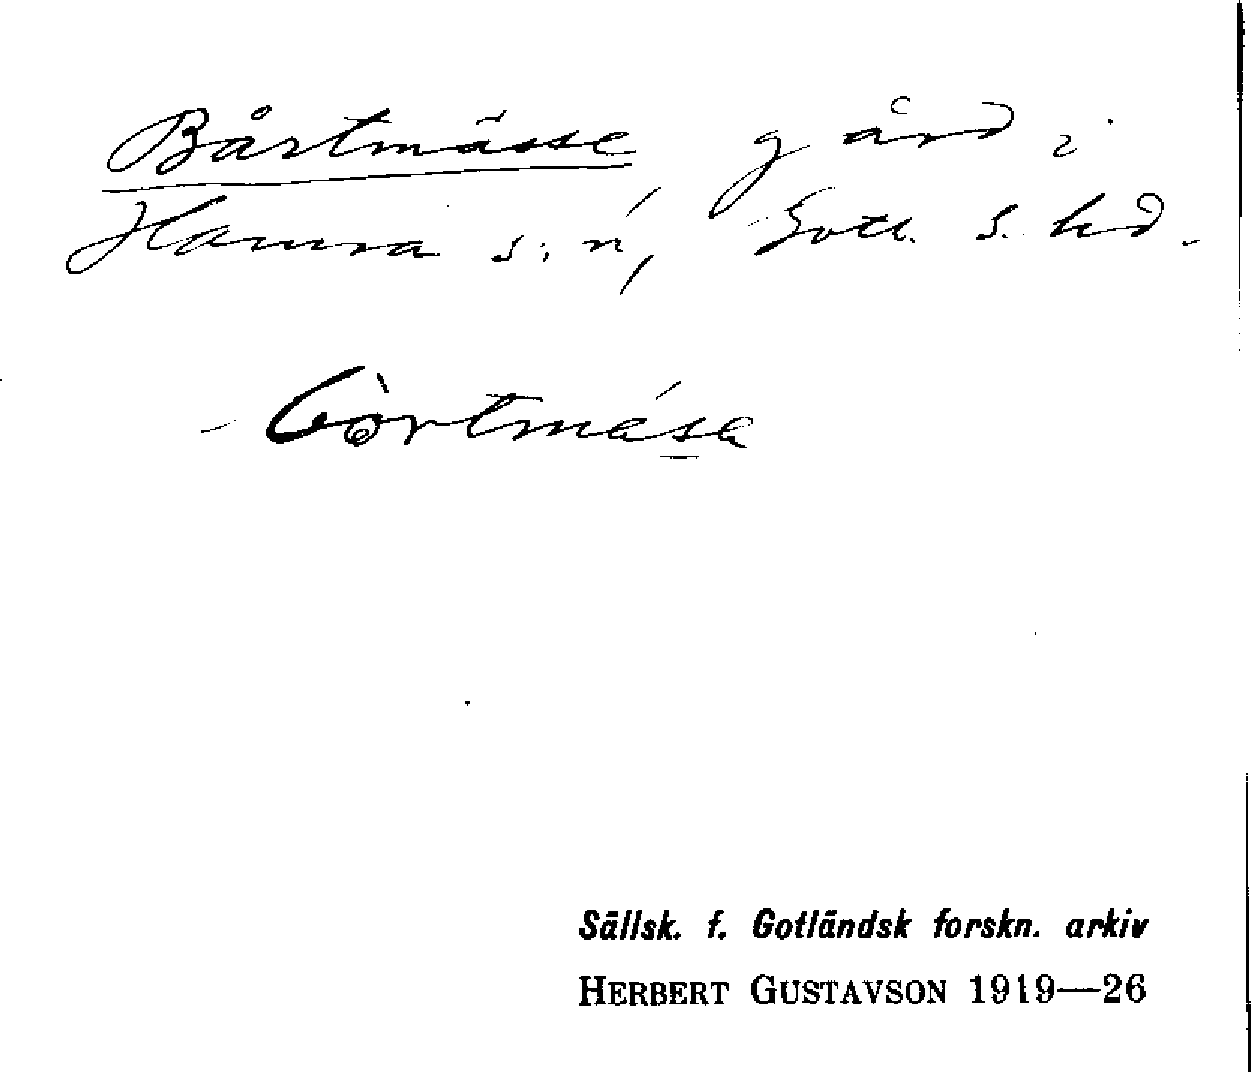 Bårtmässe gård i
Hamra s:n, Gotl. S. hd.
Sällsk. f. Gotländsk forskn. arkiv
HERBERT GUSTAVSON 1919—26